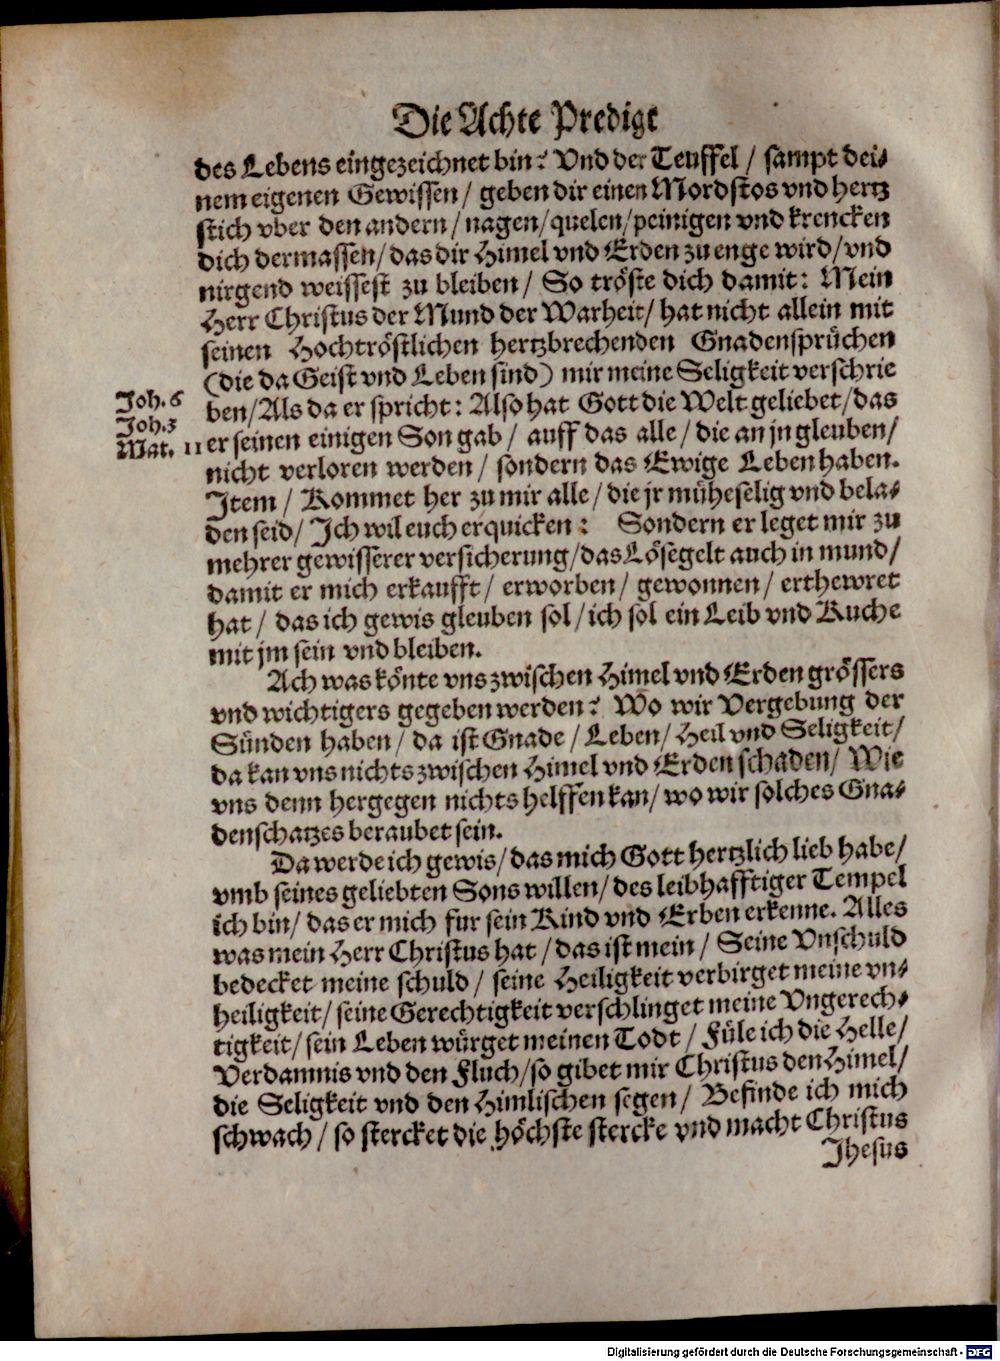 Die Achte Predigt
des Lebens eingezeichnet bin? Vnd der Teuffel / sampt dei-
nem eigenen Gewissen / geben dir einen Mordstos vnd hertz
stich vber den andern / nagen / quelen / peinigen vnd krencken
dich dermassen / das dir Himel vnd Erden zu enge wird / vnd
nirgend weissest zu bleiben / So tröste dich damit: Mein
Herr Christus der Mund der Warheit / hat nicht allein mit
seinen Hochtröstlichen hertzbrechenden Gnadensprüchen
(die da Geist vnd Leben sind) mir meine Seligkeit verschrie
Joh. 6
ben / Als da er spricht: Also hat Gott die Welt geliebet / das
Joh. 3
Mat. 11
er seinen einigen Son gab / auff das alle / die an jn gleuben /
nicht verloren werden / sondern das Ewige Leben haben.
Item / Kommet her zu mir alle / die jr müheselig vnd bela-
den seid / Ich wil euch erquicken: Sondern er leget mir zu
mehrer gewisserer versicherung / das Lösegelt auch in mund /
damit er mich erkaufft / erworben / gewonnen / erthewret
hat / das ich gewis gleuben sol / ich sol ein Leib vnd Kuche
mit jm sein vnd bleiben.
Ach was könte vns zwischen Himel vnd Erden grössers
vnd wichtigers gegeben werden? Wo wir Vergebung der
Sünden haben / da ist Gnade / Leben / Heil vnd Seligkeit /
da kan vns nichts zwischen Himel vnd Erden schaden / Wie
vns denn hergegen nichts helffen kan / wo wir solches Gna-
denschatzes beraubet sein.
Da werde ich gewis / das mich Gott hertzlich lieb habe /
vmb seines geliebten Sons willen / des leibhafftiger Tempel
ich bin / das er mich fur sein Kind vnd Erben erkenne. Alles
was mein Herr Christus hat / das ist mein / Seine Vnschuld
bedecket meine schuld / seine Heiligkeit verbirget meine vn-
heiligkeit / seine Gerechtigkeit verschlinget meine Vngerech-
tigkeit / sein Leben würget meinen Todt / Füle ich die Helle /
Verdamnis vnd den Fluch / so gibet mir Christus den Himel /
die Seligkeit vnd den Himlischen segen / Befinde ich mich
schwach / so stercket die höchste stercke vnd macht Christus
Jhesus
Digitalisierung gefördert durch die Deutsche Forschungsgemeinschaft - DFG